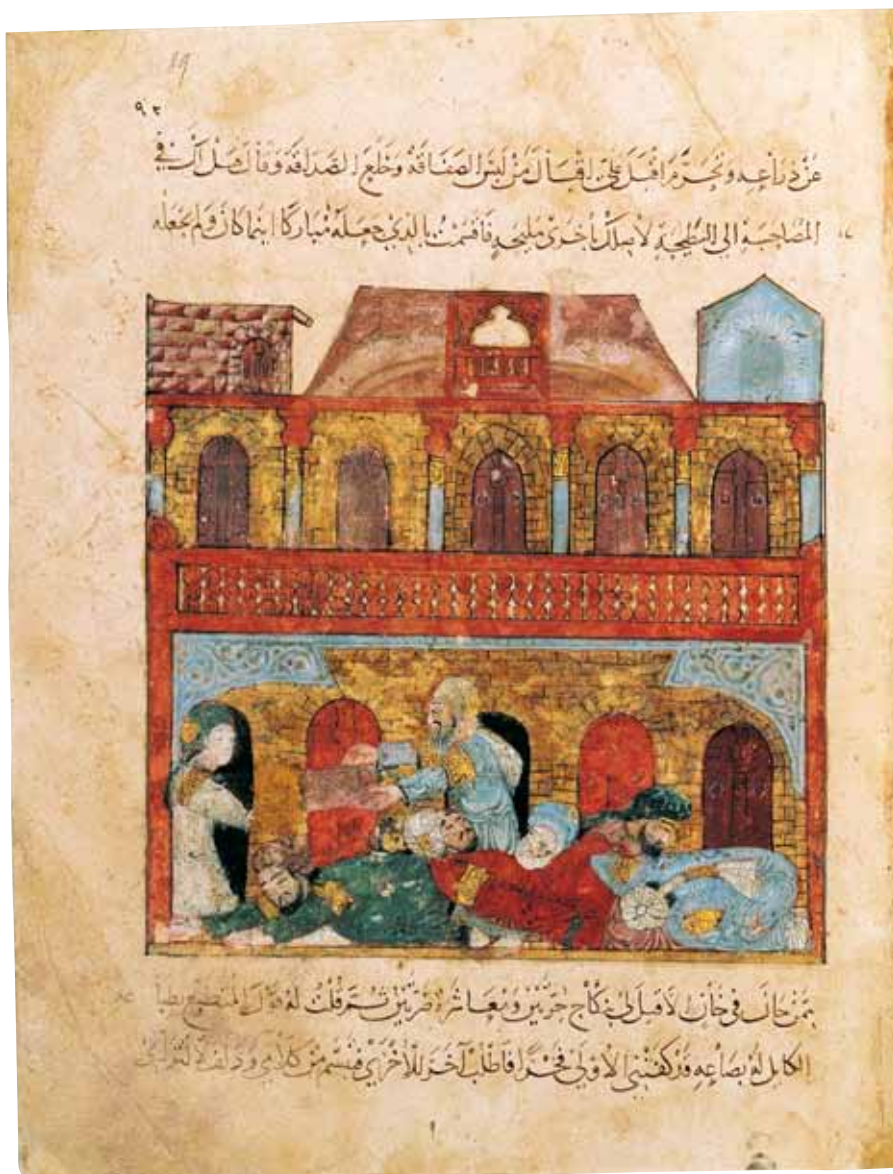 ٩٢
عن ذراعيه وتحزم ثم اقبل علي اقبال من لبس الصفاقة وخلع الصداقة وقال هل لك في
المصاحبة الى البطيحة لاصلك باخرى مليحة فاقسمت بالذي جعله مباركا اينما كان ولم يجعله
ممن خان في خان لا قبل لي بنكاح حرتين ومعاشرة ضرتين ثم قلت له قول المتطبع بطبا
الكايل له بصاعه قد كفتني الاولى فخرا فاطلب آخر للاخرى فتبسم من كلامي ودلف لالتزامي